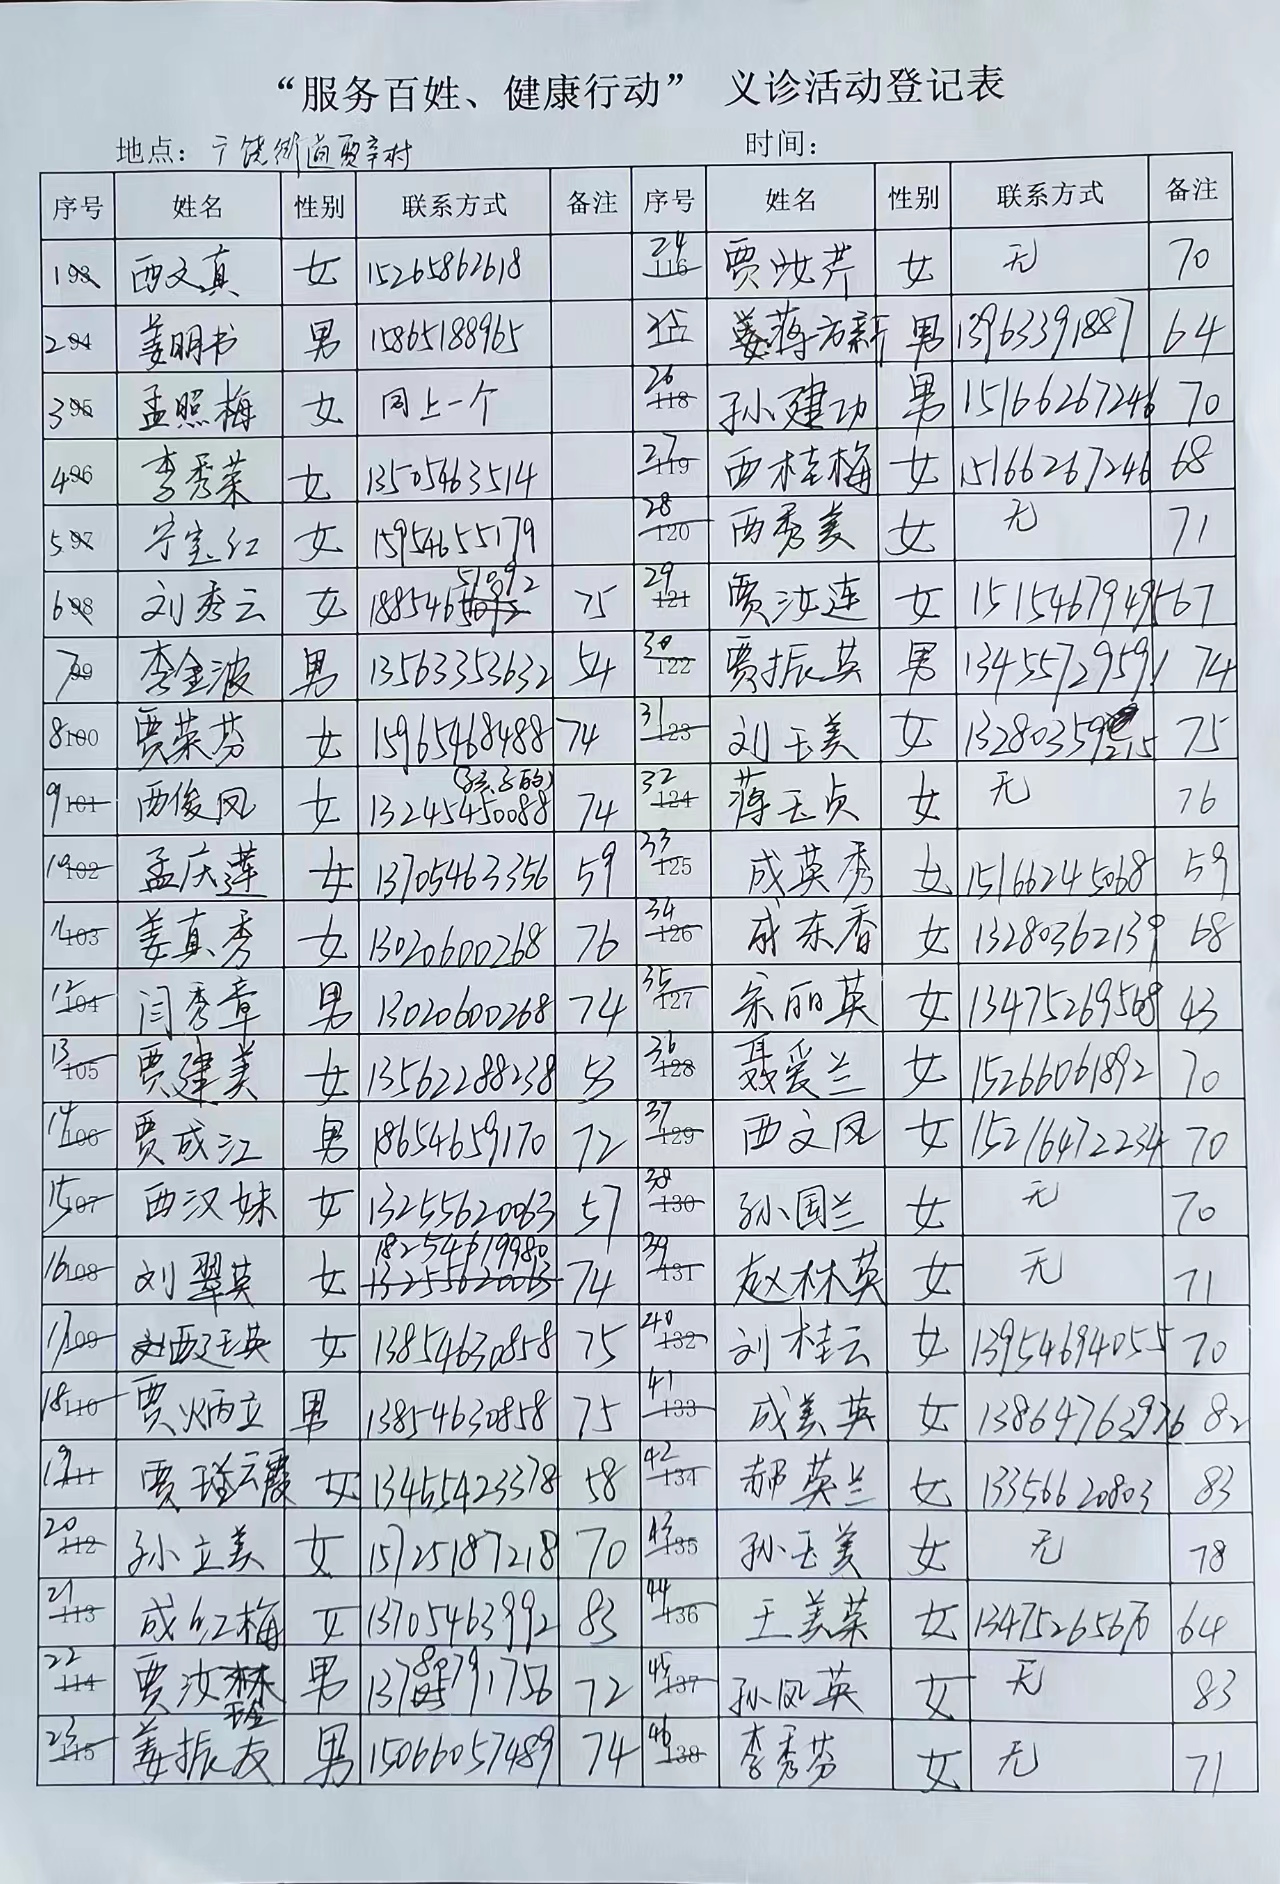 “服务百姓、健康行动” 义诊活动登记表
地点：广饶街道贾辛村 时间：
序号 姓名 性别 联系方式 备注 序号 姓名 性别 联系方式 备注
1 西文真 女 15265862618 24 贾汝芹 女 无 70
2 姜明书 男 15865188965 25 蒋方新 男 13963391887 64
3 孟照梅 女 同上一个 26 孙建功 男 15166267246 70
4 李秀荣 女 13505463514 27 西桂梅 女 15166267246 68
5 宁宝红 女 15954655179 28 西秀美 女 无 71
6 刘秀云 女 18854651092 75 29 贾汝连 女 15154679495 67
7 李金波 男 13563353632 54 30 贾振英 男 13455729591 74
8 贾荣芬 女 15965468488 74 31 刘玉美 女 13280359215 75
9 西俊凤 女 13245450088 (孩子的) 74 32 蒋玉贞 女 无 76
10 孟庆莲 女 13705463356 59 33 成英秀 女 15166245068 59
11 姜真秀 女 13020600268 76 34 成东香 女 13280362139 68
12 闫秀章 男 13020600268 74 35 宋丽英 女 13475269568 43
13 贾建美 女 13562288238 53 36 聂爱兰 女 15266061892 70
14 贾成江 男 18654659170 72 37 西文凤 女 15216472234 70
15 西汉妹 女 13255620063 57 38 孙国兰 女 无 70
16 刘翠英 女 18254619980 74 39 赵林英 女 无 71
17 西廷英 女 13854630858 75 40 刘桂云 女 13954694055 70
18 贾炳立 男 13854630858 75 41 成美英 女 13864763976 82
19 贾云霞 女 13455423378 58 42 郝英兰 女 13356620803 83
20 孙立美 女 15725187218 70 43 孙玉美 女 无 78
21 成红梅 女 13705463992 83 44 王美荣 女 13475265670 64
22 贾汝 男 13780791756 72 45 孙凤英 女 无 83
23 姜振友 男 15066057489 74 46 李秀芬 女 无 71